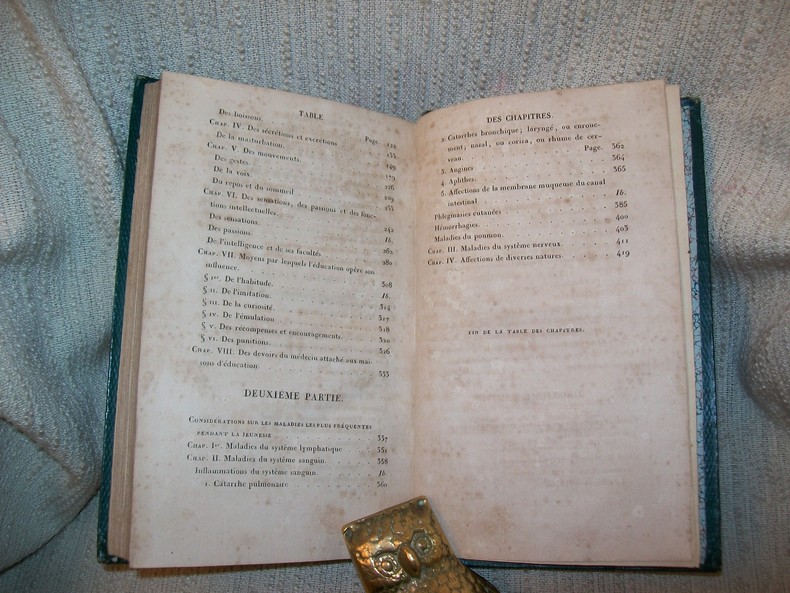 TABLE
Des boissons.
Page. 122
CHAP. IV. Des sécrétions et excrétions
De la masturbation.
CHAP. V. Des mouvemens. 149
Des gestes.
De la voix.
Du repos et du sommeil
CHAP. VI. Des sensations, des passions et des fonc-
tions intellectuelles.
Des sensations. 242
Des passions. Ib.
De l'intelligence et de ses facultés. 262
CHAP. VII. Moyens par lesquels l'éducation opère son 280
influence.
§ Ier. De l'habitude. 308
§ II. De l'imitation. Ib.
§ III. De la curiosité. 314
§ IV. De l'émulation 317
§ V. Des récompenses et encouragemens. 318
§ VI. Des punitions. 320
CHAP. VIII. Des devoirs du médecin attaché aux mai- 326
sons d'éducation. 333
DEUXIÈME PARTIE.
CONSIDÉRATIONS SUR LES MALADIES LES PLUS FRÉQUENTES
PENDANT LA JEUNESSE 337
CHAP. Ier. Maladies du système lymphatique 351
CHAP. II. Maladies du système sanguin. 358
Inflammations du système sanguin. Ib.
1. Catarche pulmonaire 360
DES CHAPITRES.
2. Catarrhes bronchique; laryngé, ou enroue-
ment; nasal, ou coriza, ou rhume de cer-
veau. Page. 362
3. Angines 364
4. Aphthes. 365
5. Affections de la membrane muqueuse du canal
intestinal Ib.
Phlegmasies cutanées 385
Hémorrhagies. 400
Maladies du poumon. 403
CHAP. III. Maladies du système nerveux. 411
CHAP. IV. Affections de diverses natures. 419
FIN DE LA TABLE DES CHAPITRES.